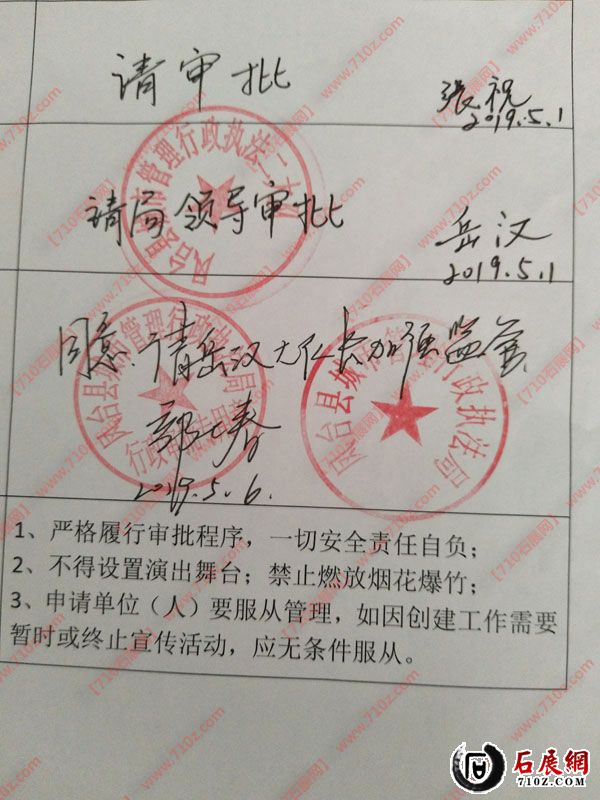 请审批
张祝
2019.5.1
凤台县城市管理行政执法二大队
请局领导审批
岳汉
2019.5.1
同意.请岳汉大队长加强监管
2019.5.6.
凤台县城市管理行政执法局
行政审批专用章
凤台县城市管理行政执法局
1、严格履行审批程序，一切安全责任自负；
2、不得设置演出舞台；禁止燃放烟花爆竹；
3、申请单位（人）要服从管理，如因创建工作需要
暂时或终止宣传活动，应无条件服从。
【710石展网】www.710z.com
石展網
710Z.COM